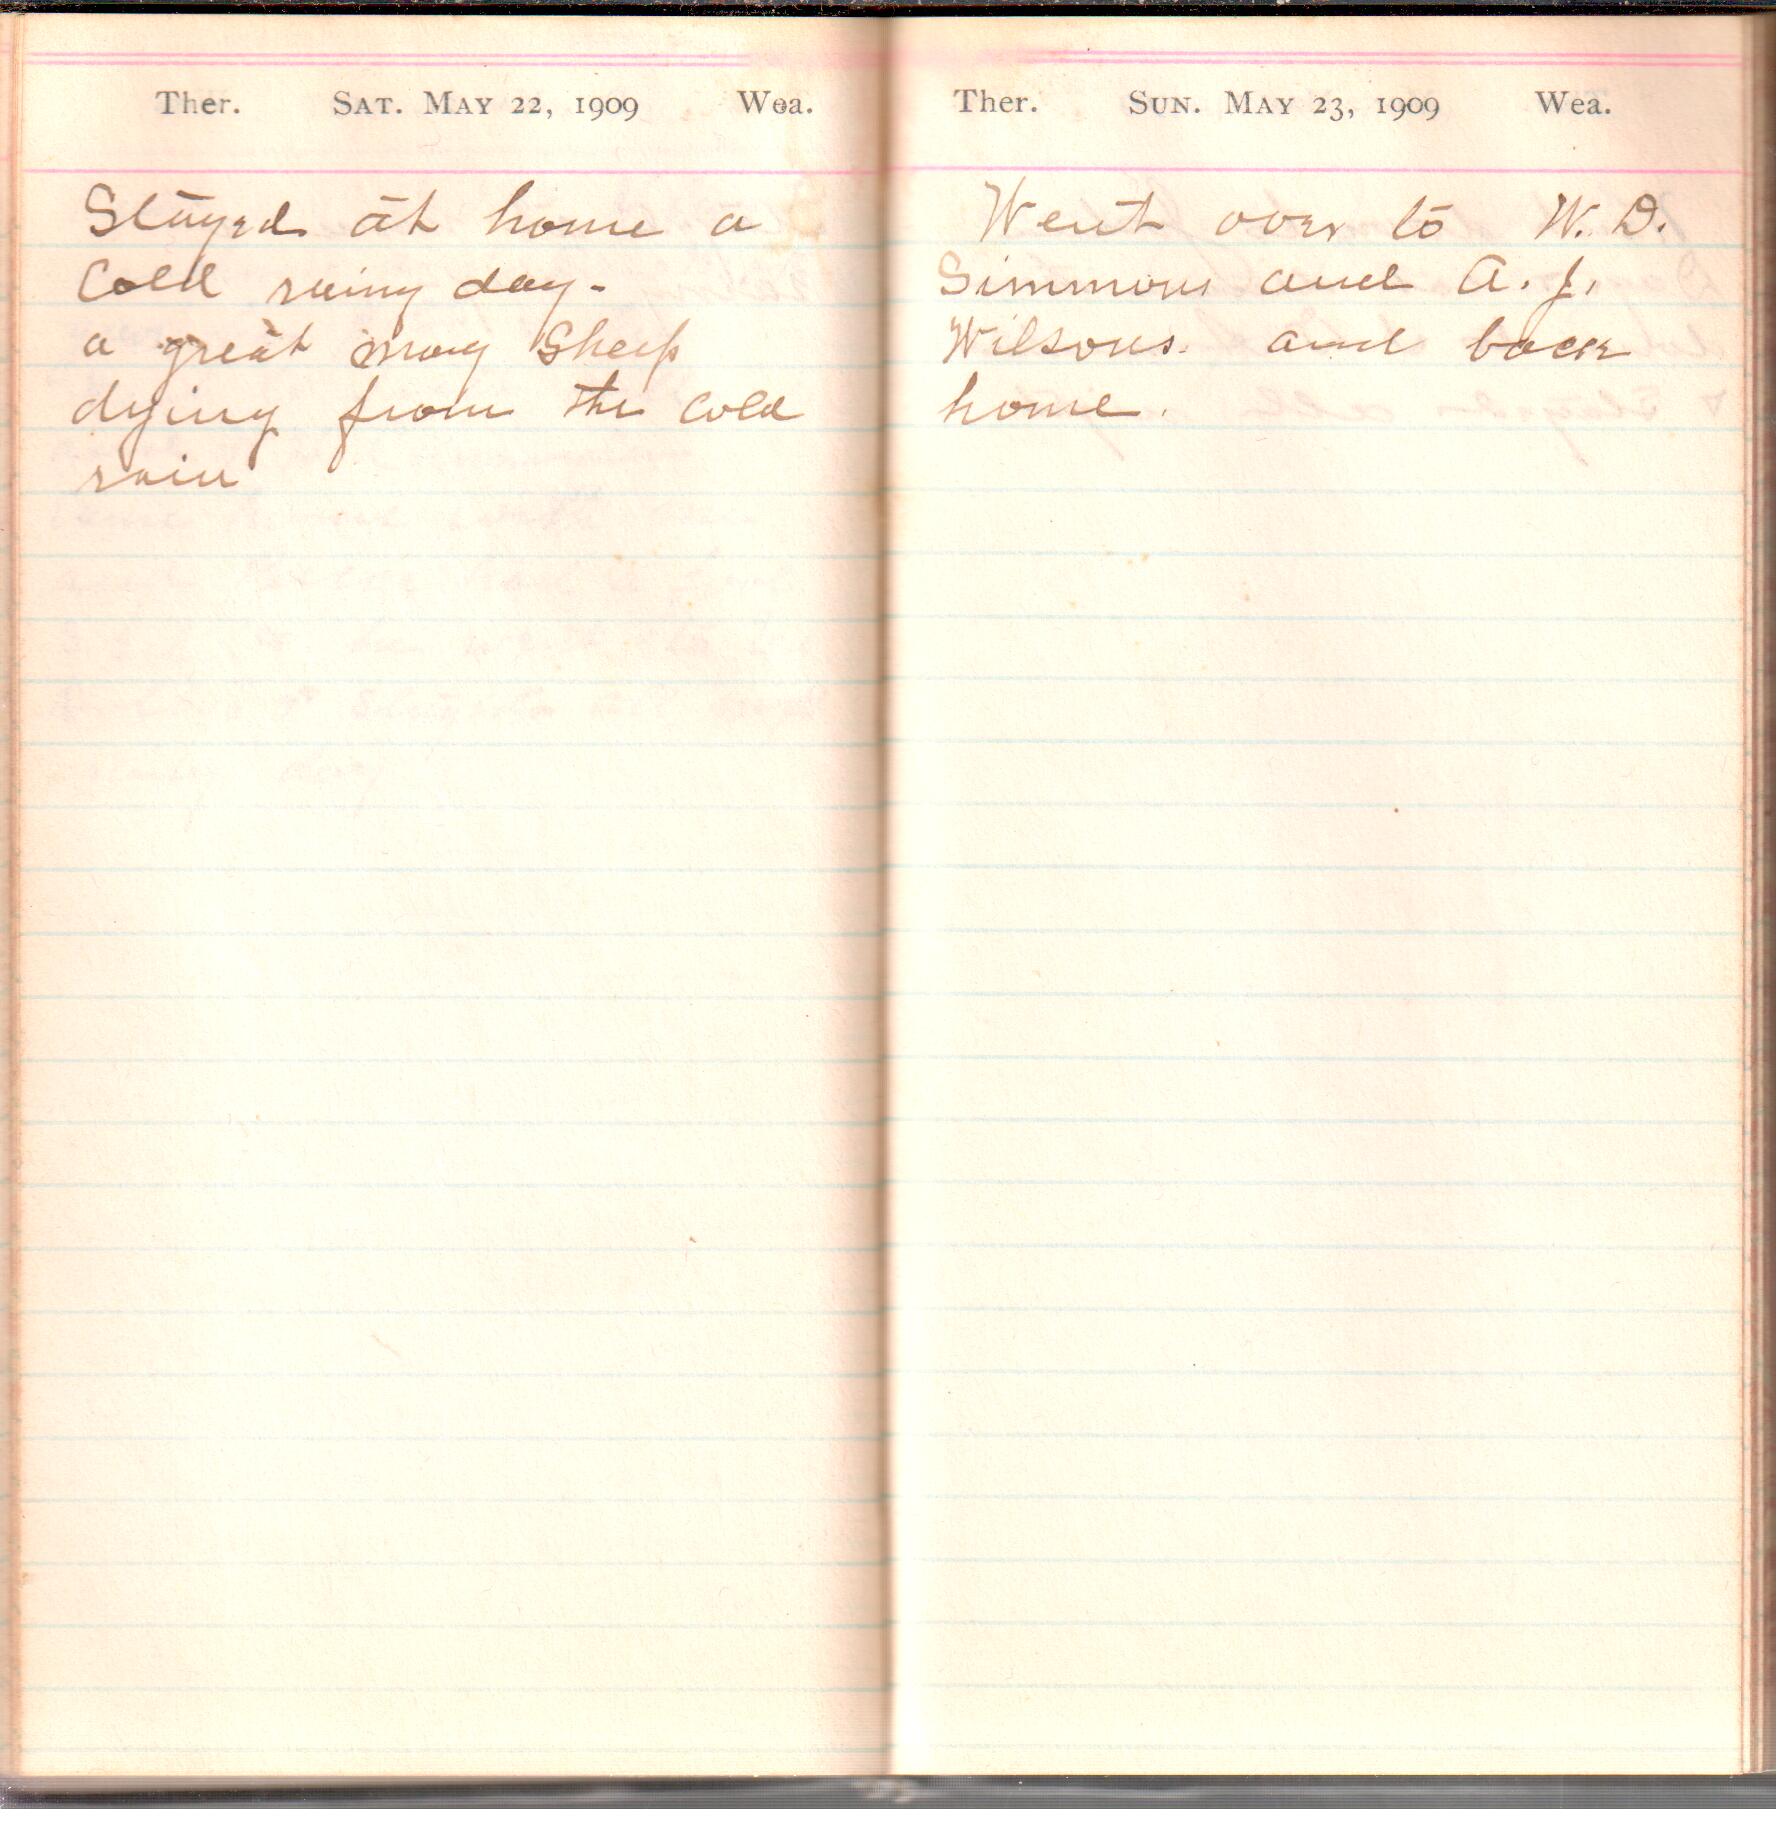 Ther. SAT. MAY 22, 1909 Wea.
Stayed at home a
Cold rainy day-
a great many Sheep
dying from the Cold
rain
Ther. SUN. MAY 23, 1909 Wea.
Went over to W. D.
Simmons and A. J.
Wilsons. and back
home.